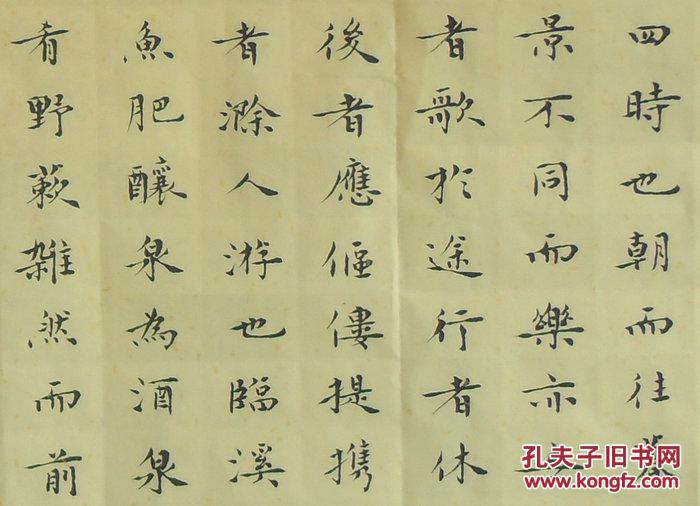 四時也朝而往暮
景不同而樂亦
者歌於途行者休
後者應傴僂提携
者滁人游也臨溪
魚肥釀泉為酒泉
肴野蔌雜然而前
孔夫子旧书网
www.kongfz.com